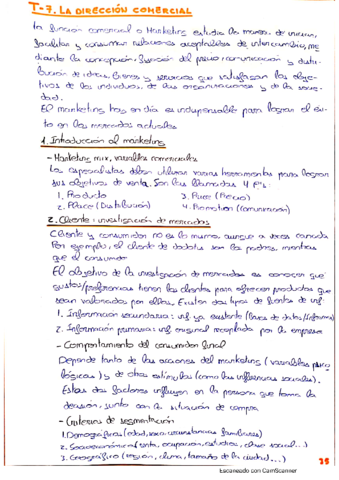 T-7. LA DIRECCIÓN COMERCIAL
La función comercial o Marketing estudia la manera de iniciar,
facilitar y consumar relaciones aceptables de intercambio, me
diante la concepción, fijación del precio, comunicación y distri-
bución de ideas, bienes y servicios que satisfagan los obje-
tivos de los individuos, de las organizaciones y de la socie-
dad.
El marketing hoy en día es indispensable para lograr el éxi-
to en los mercados actuales.
1. Introducción al marketing
- Marketing mix, variables comerciales
Los especialistas deben utilizar varias herramientas para lograr
sus objetivos de venta. Son las llamadas 4 p's:
1. Producto 3. Price (Precio)
2. Place (Distribución) 4. Promotion (Comunicación)
2. Cliente: investigación de mercados
Cliente y consumidor no es lo mismo, aunque a veces coincida.
Por ejemplo, el cliente de dodotis son los padres, mientras
que el consumidor
El objetivo de la investigación de mercados es conocer qué
gustos/preferencias tienen los clientes para ofrecer productos que
sean valorados por ellos. Existen dos tipos de fuentes de inf:
1. Información secundaria: inf ya existente (bases de datos/informes)
2. Información primaria: inf. original recopilada por la empresa
- Comportamiento del consumidor final
Depende tanto de las acciones del marketing (variables psico
lógicas) y de otros estímulos (como las influencias sociales).
Estos dos factores influyen en la persona que toma la
decisión, junto con la situación de compra.
- Criterios de segmentación
1. Demográficos (edad, sexo, circunstancias familiares)
2. Socioeconómicos (renta, ocupación, estudios, clase social...)
3. Geográfico (región, clima, tamaño de la ciudad...)
25
Escaneado con CamScanner